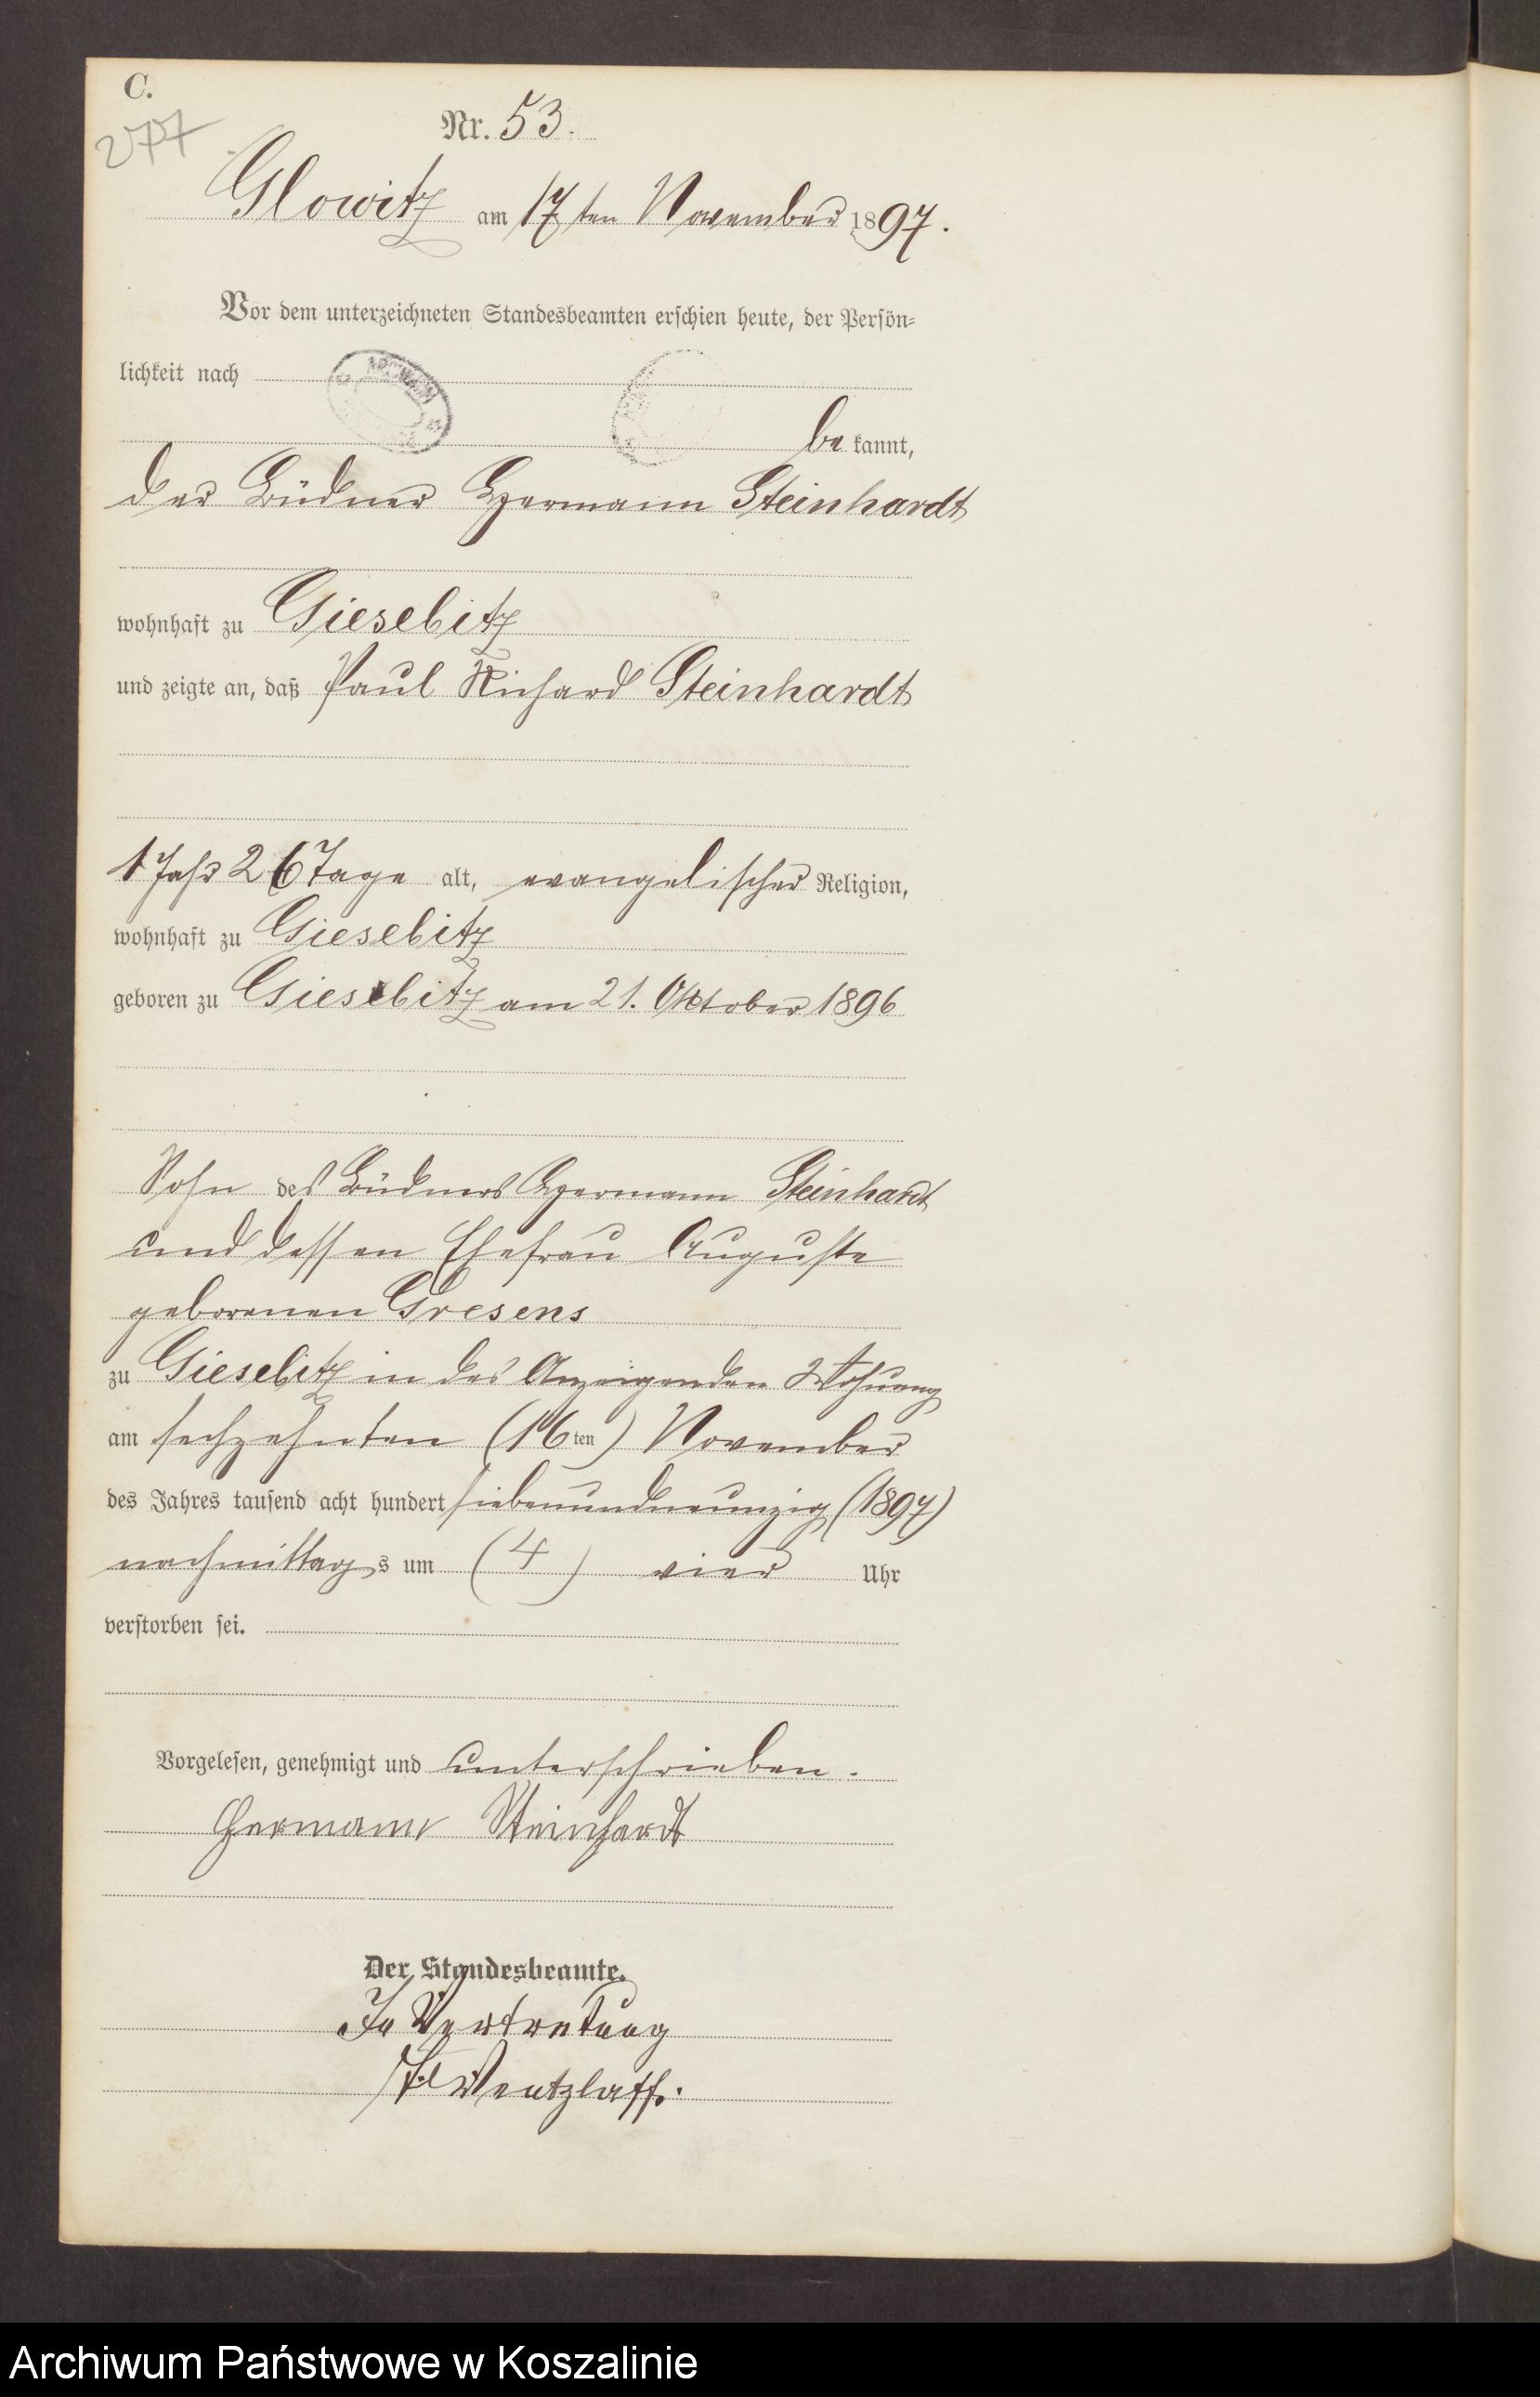 C.
277
Nr. 53.
Glowitz am 17ten November 1897.
Vor dem unterzeichneten Standesbeamten erschien heute, der Persön-
lichkeit nach
be kannt,
der Büdner Hermann Steinhardt
wohnhaft zu Gieselitz
und zeigte an, daß Paul Richard Steinhardt
1 Jahr 26 Tage alt, evangelischer Religion,
wohnhaft zu Giesebitz
geboren zu Giesebitz am 21. Oktober 1896
Sohn des Büdners Hermann Steinhardt
und dessen Ehefrau Auguste
geborenen Gresens
zu Giesebitz in des Anzeigenden Wohnung
am sechzehnten (16ten) November
des Jahres tausend acht hundert siebenundneunzig (1897)
nachmittags um (4) vier Uhr
verstorben sei.
Vorgelesen, genehmigt und unterschrieben.
Hermann Steinhardt
Der Standesbeamte.
In Vertretung
Wentzlaff.
Archiwum Państwowe w Koszalinie